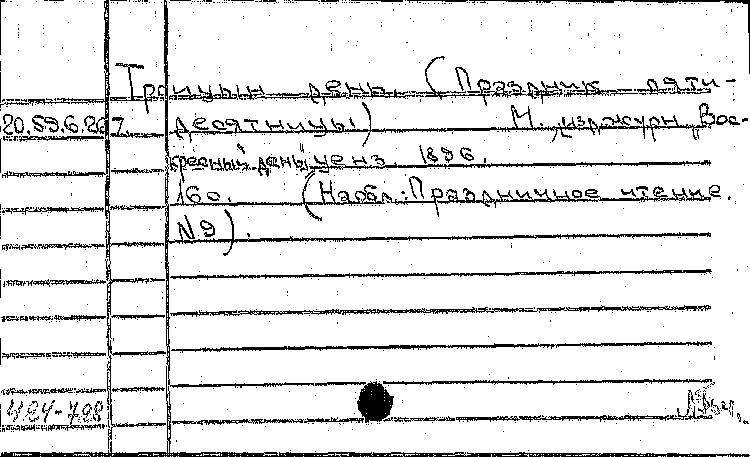 Троицын день. (Праздник пяти-
20.59.6.267. десятницы) М., изд. журн. „Вос-
кресный день", ценз. 1896.
16 с. (На обл.: Праздничное чтение.
N 9).
424-798